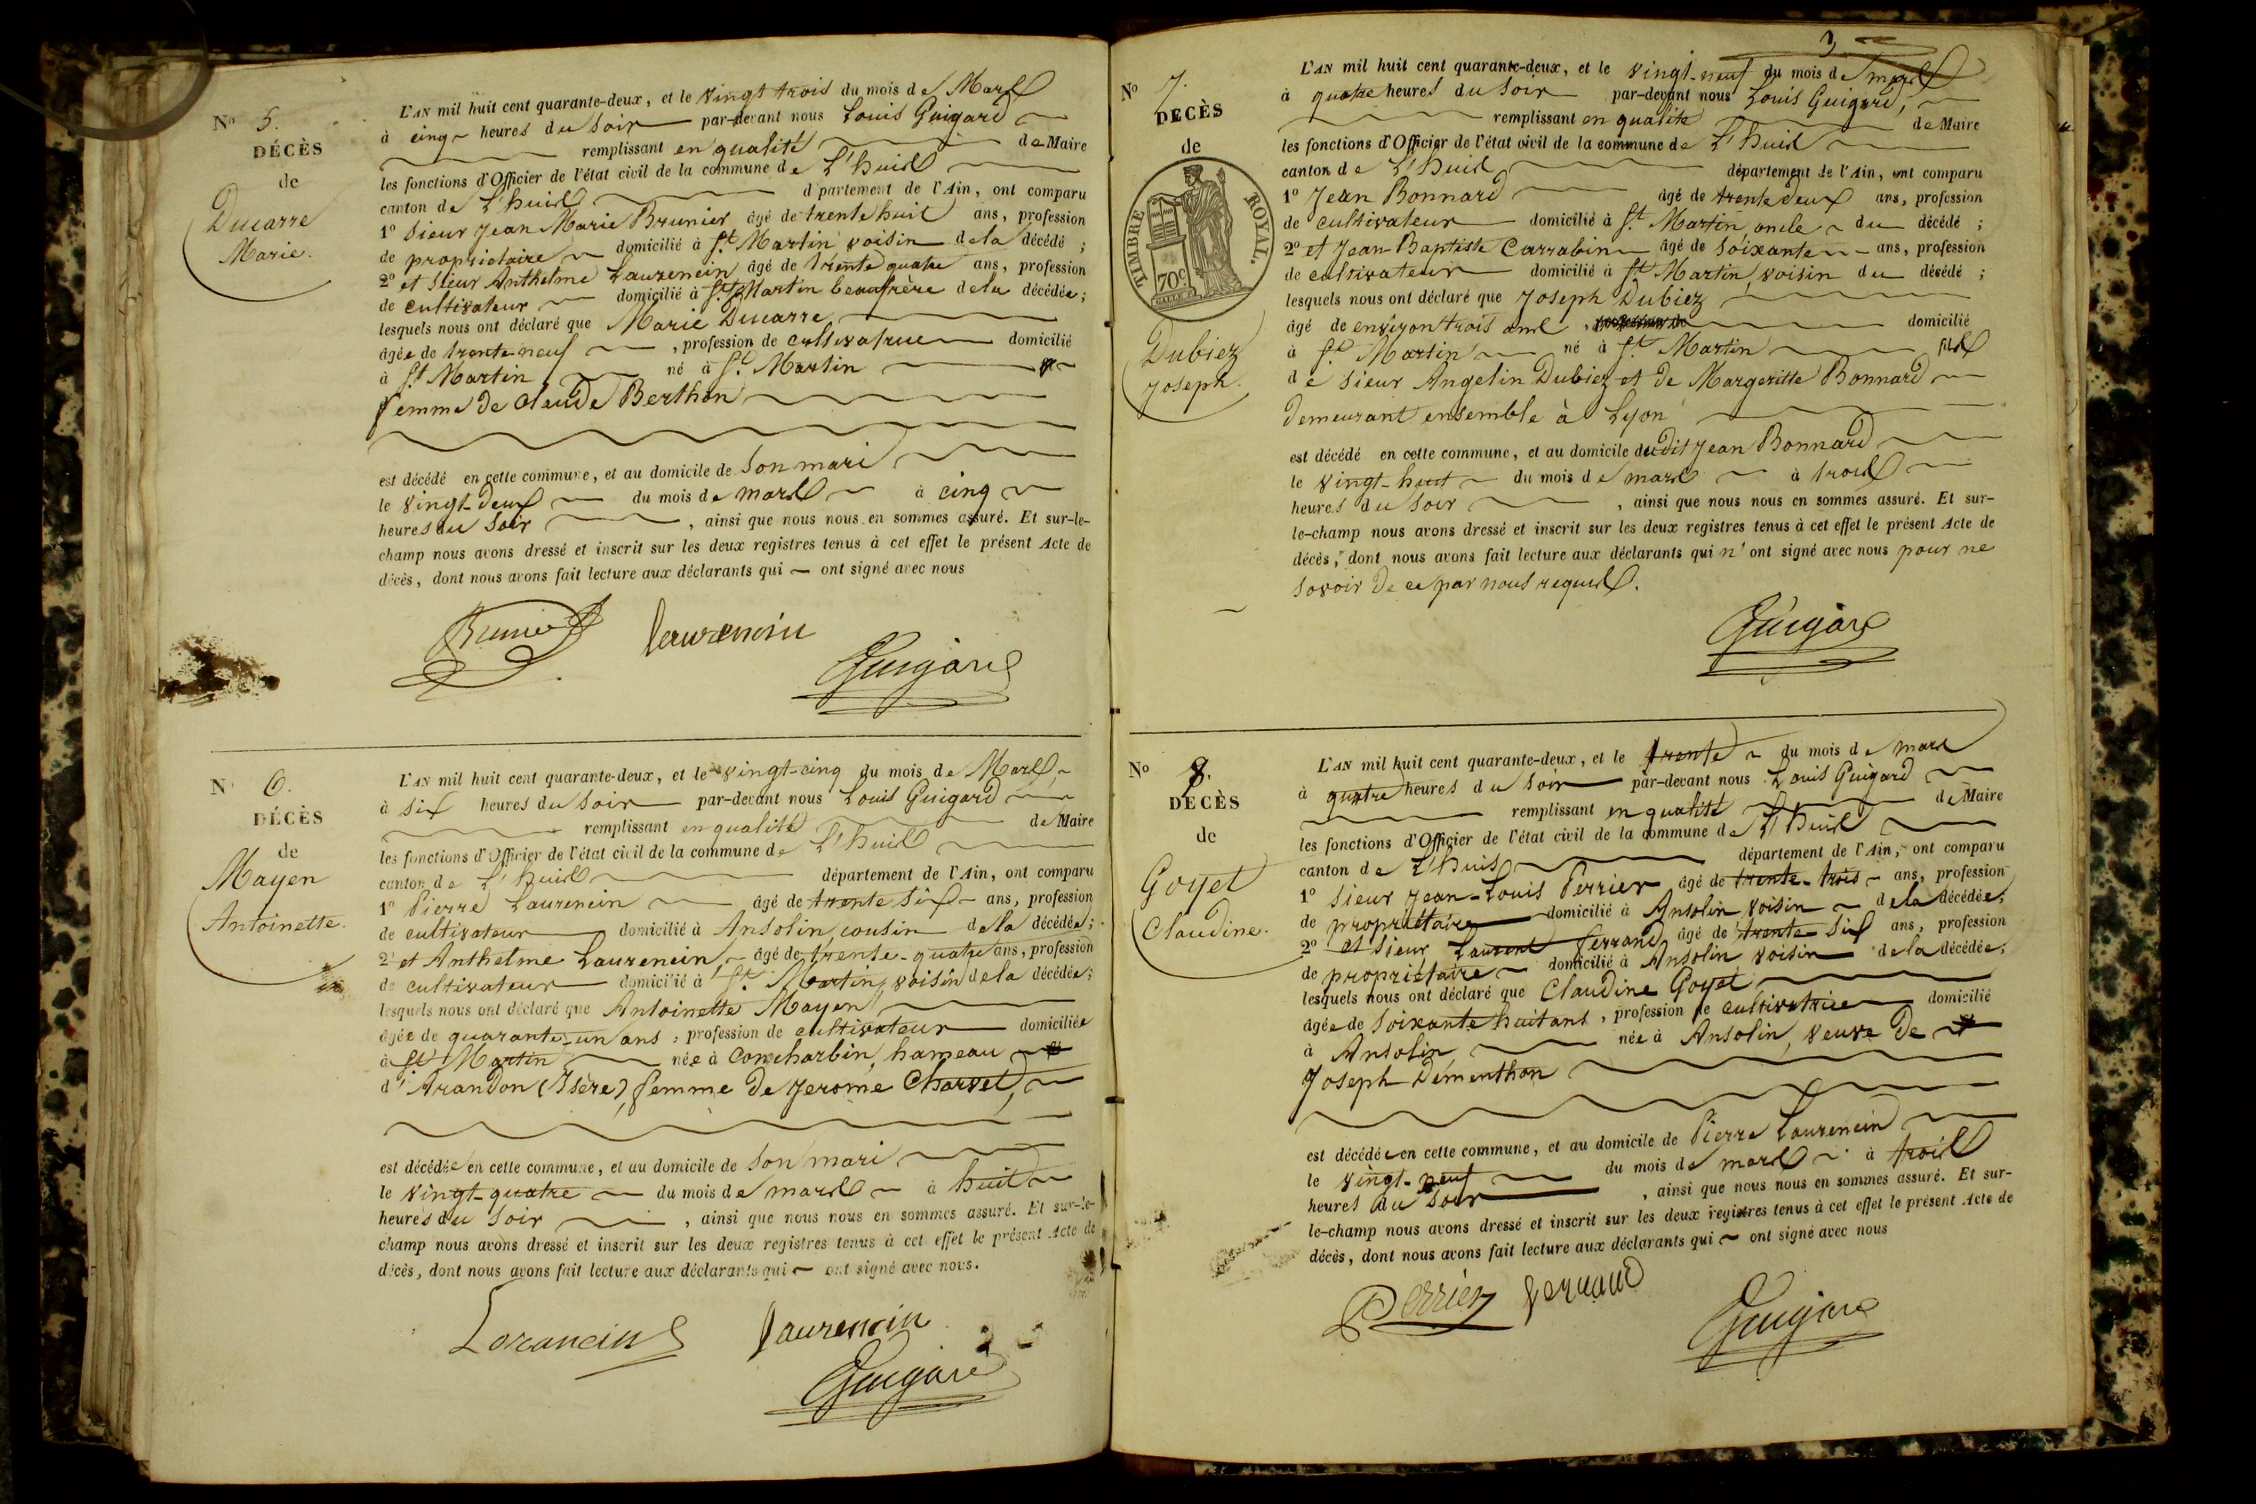 No 5.
DÉCÈS
de
Ducarre
Marie.
L'AN mil huit cent quarante-deux, et le vingt trois du mois de Mars
à cinq heures du soir par-devant nous Louis Guigard
remplissant en qualité de Maire
les fonctions d'Officier de l'état civil de la commune de L'huis
canton de L'huis d partement de l'Ain, ont comparu
1° Sieur Jean Marie Brunier âgé de trente huit ans, profession
de propriétaire domicilié à St Martin voisin de la décédé ;
2° et Sieur Anthelme Laurencin âgé de trente quatre ans, profession
de cultivateur domicilié à St Martin beaufrère de la décédée ;
lesquels nous ont déclaré que Marie Ducarre
âgée de trente-neuf , profession de cultivatrice domicilié
à St Martin né à St Martin
femme de Claude Berthon
est décédé en cette commune, et au domicile de son mari
le vingt-deux du mois de mars à cinq
heures du soir , ainsi que nous nous en sommes assuré. Et sur-le-
champ nous avons dressé et inscrit sur les deux registres tenus à cet effet le présent Acte de
décès, dont nous avons fait lecture aux déclarants qui ont signé avec nous
Brunier Laurencin
Guigard
N 6.
DÉCÈS
de
Mayen
Antoinette.
L'AN mil huit cent quarante-deux, et le vingt-cinq du mois de Mars,
à six heures du soir par-devant nous Louis Guigard
remplissant en qualité de Maire
les fonctions d'Officier de l'état civil de la commune de L'huis
canton de L'huis département de l'Ain, ont comparu
1° Pierre Laurencin âgé de trente six ans, profession
de cultivateur domicilié à Ansolin, cousin de la décédée ;
2° et Anthelme Laurencin, âgé de trente-quatre ans, profession
de cultivateur domicilié à St Martin, voisin de la décédée ;
lesquels nous ont déclaré que Antoinette Mayen
âgée de quarante-un ans, profession de cultivateur domiciliée
à St Martin née à Concharbin, hameau
d'Arandon (Isère), femme de Jerome Charvet,
est décédée en cette commune, et au domicile de son mari
le vingt-quatre du mois de mars à huit
heures du soir , ainsi que nous nous en sommes assuré. Et sur-le-
champ nous avons dressé et inscrit sur les deux registres tenus à cet effet le présent Acte de
décès, dont nous avons fait lecture aux déclarants qui ont signé avec nous.
Lorancin Laurencin
Guigard
3
No 7.
DÉCÈS
de
TIMBRE ROYAL.
70c
Dubiez
Joseph.
L'AN mil huit cent quarante-deux, et le vingt-neuf du mois de mars
à quatre heures du soir par-devant nous Louis Guigard,
remplissant en qualité de Maire
les fonctions d'Officier de l'état civil de la commune de L'huis
canton de L'huis département de l'Ain, ont comparu
1° Jean Bonnard âgé de trente deux ans, profession
de cultivateur domicilié à St Martin, oncle du décédé ;
2° et Jean Baptiste Carrabin âgé de soixante ans, profession
de cultivateur domicilié à St Martin, voisin du décédé ;
lesquels nous ont déclaré que Joseph Dubiez
âgé de environ trois ans , profession de domicilié
à St Martin né à St Martin fils
de sieur Angelin Dubiez et de Margeritte Bonnard
demeurant ensemble à Lyon
est décédé en cette commune, et au domicile dudit Jean Bonnard
le vingt-huit du mois de mars à trois
heures du soir , ainsi que nous nous en sommes assuré. Et sur-
le-champ nous avons dressé et inscrit sur les deux registres tenus à cet effet le présent Acte de
décès, dont nous avons fait lecture aux déclarants qui n'ont signé avec nous pour ne
savoir de ce par nous requis.
Guigard
No 8.
DÉCÈS
de
Goyet
Claudine.
L'AN mil huit cent quarante-deux, et le trente du mois de mars
à quatre heures du soir par-devant nous Louis Guigard
remplissant en qualité de Maire
les fonctions d'Officier de l'état civil de la commune de L'huis
canton de L'huis département de l'Ain, ont comparu
1° Sieur Jean-Louis Perrier âgé de trente-trois ans, profession
de propriétaire domicilié à Ansolin, voisin de la décédée ;
2° et sieur Laurent Ferrand âgé de trente six ans, profession
de propriétaire domicilié à Ansolin voisin de la décédée ;
lesquels nous ont déclaré que Claudine Goyet
âgée de soixante huit ans, profession de cultivatrice domicilié
à Ansolin, née à Ansolin, veuve de
Joseph Démenthon
est décédée en cette commune, et au domicile de Pierre Laurencin
le vingt-neuf du mois de mars à trois
heures du soir , ainsi que nous nous en sommes assuré. Et sur-
le-champ nous avons dressé et inscrit sur les deux registres tenus à cet effet le présent Acte de
décès, dont nous avons fait lecture aux déclarants qui ont signé avec nous
Perrier Ferrand
Guigard